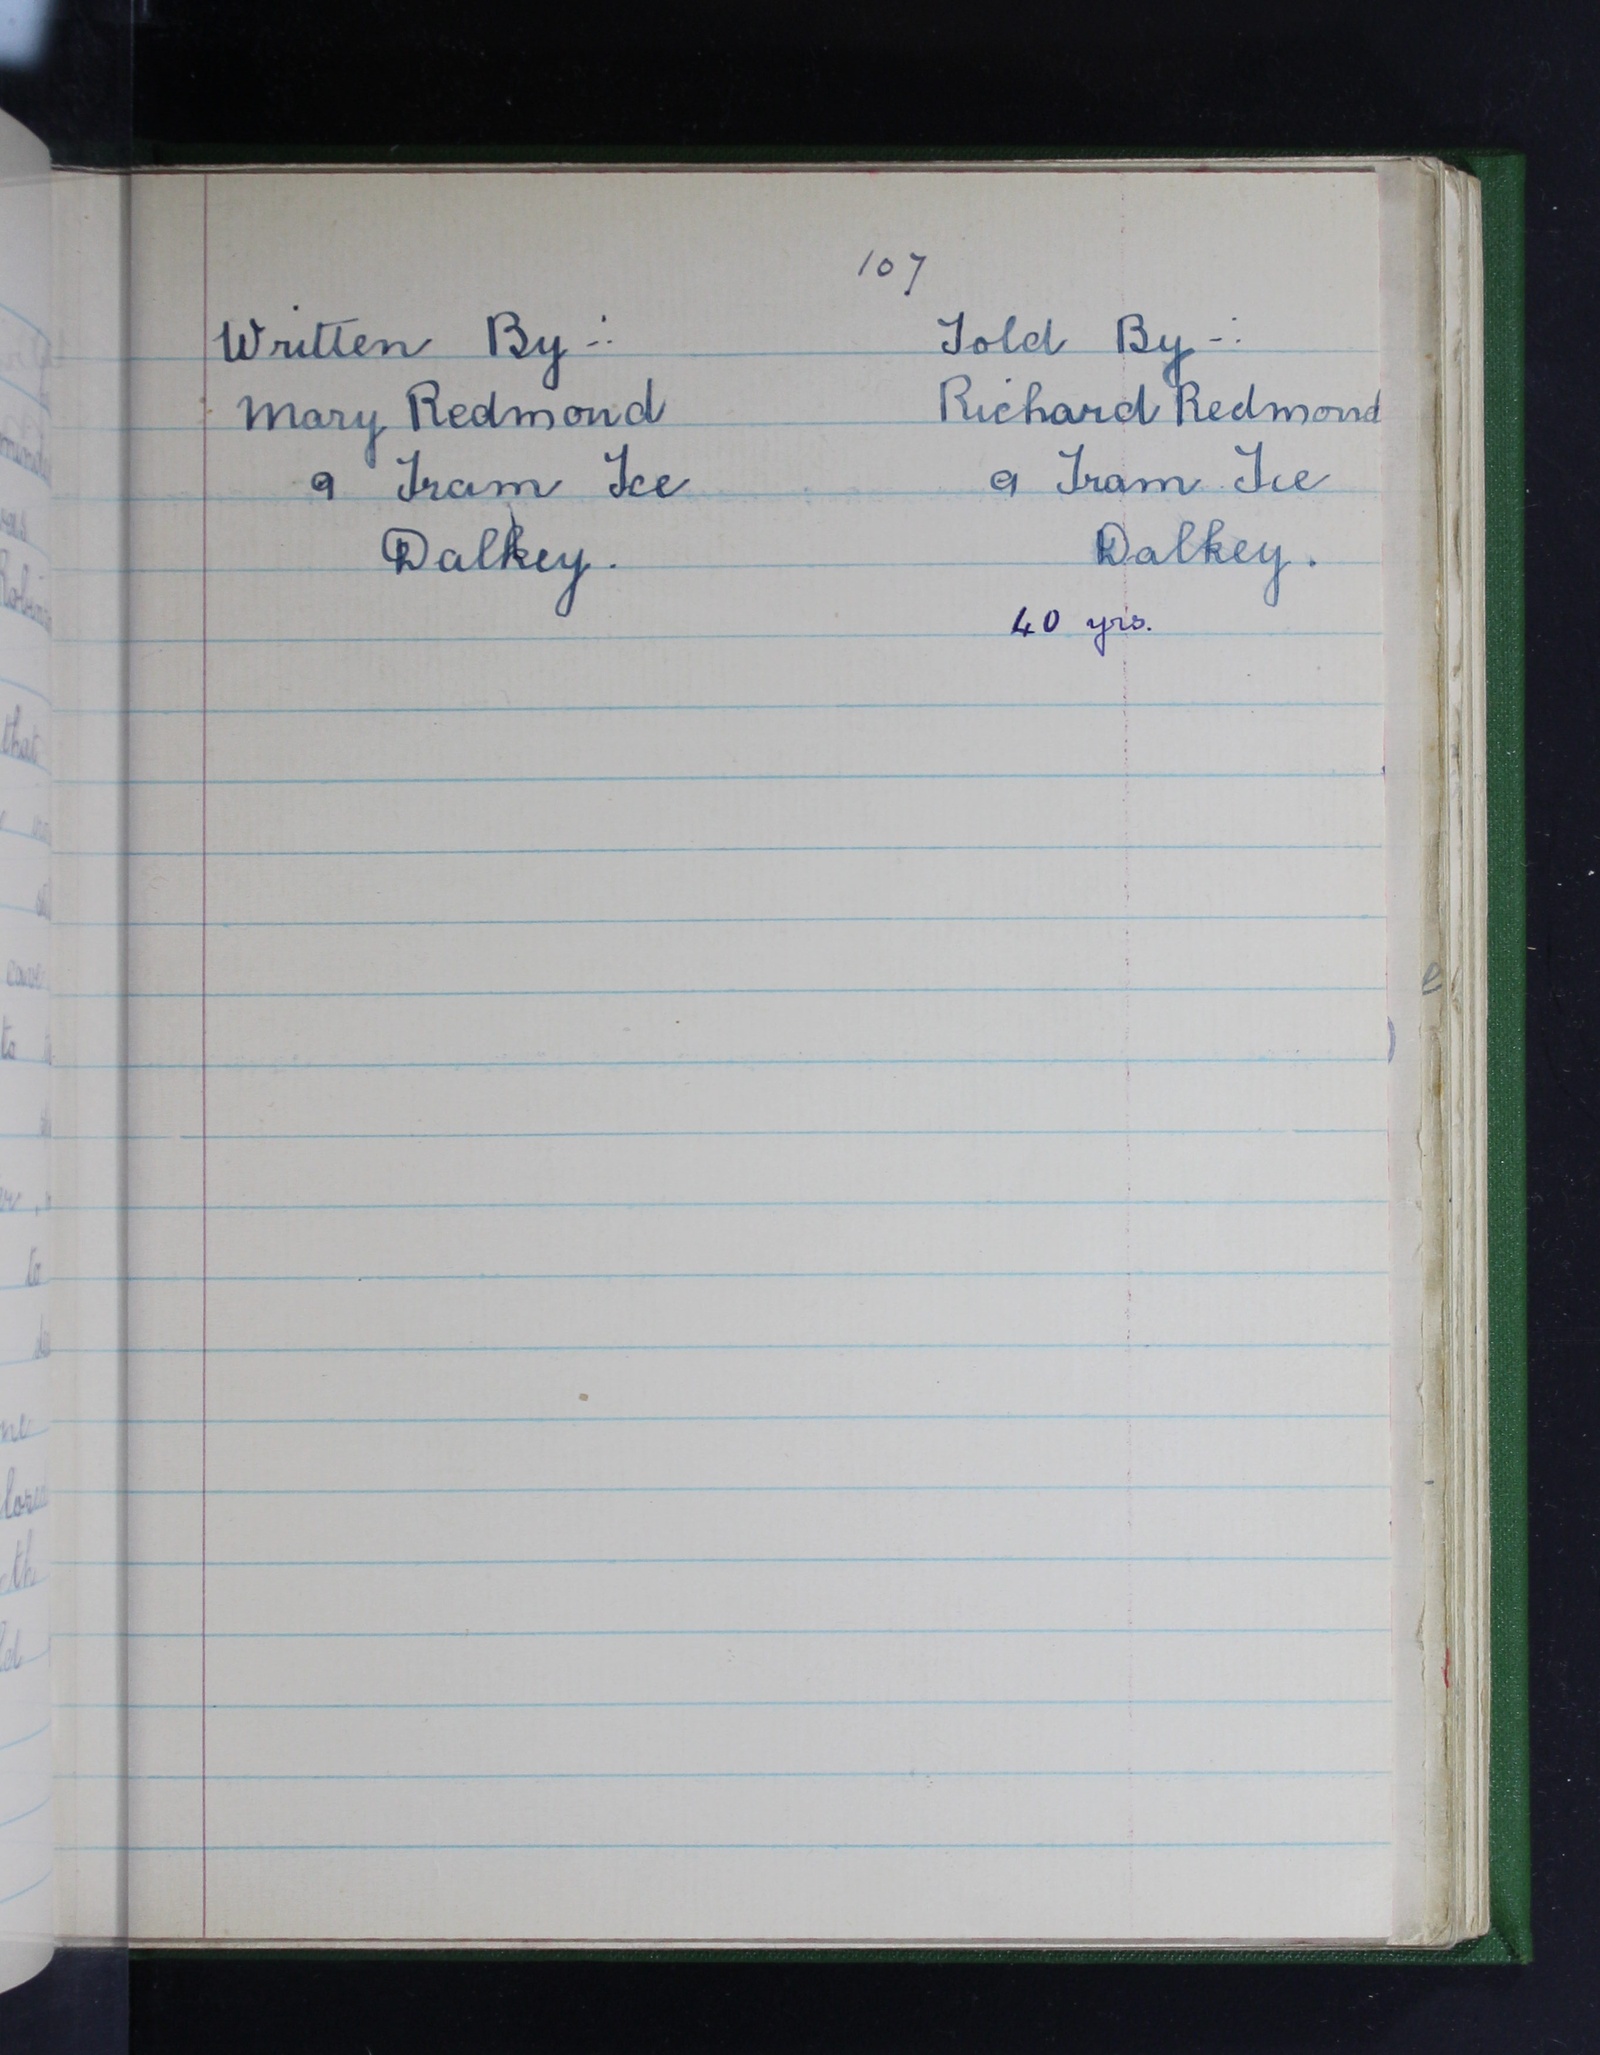 107
Written By -:
Mary Redmond
9 Tram Tce
Dalkey.
Told By -:
Richard Redmond
9 Tram Tce
Dalkey.
40 yrs.
that
to
to